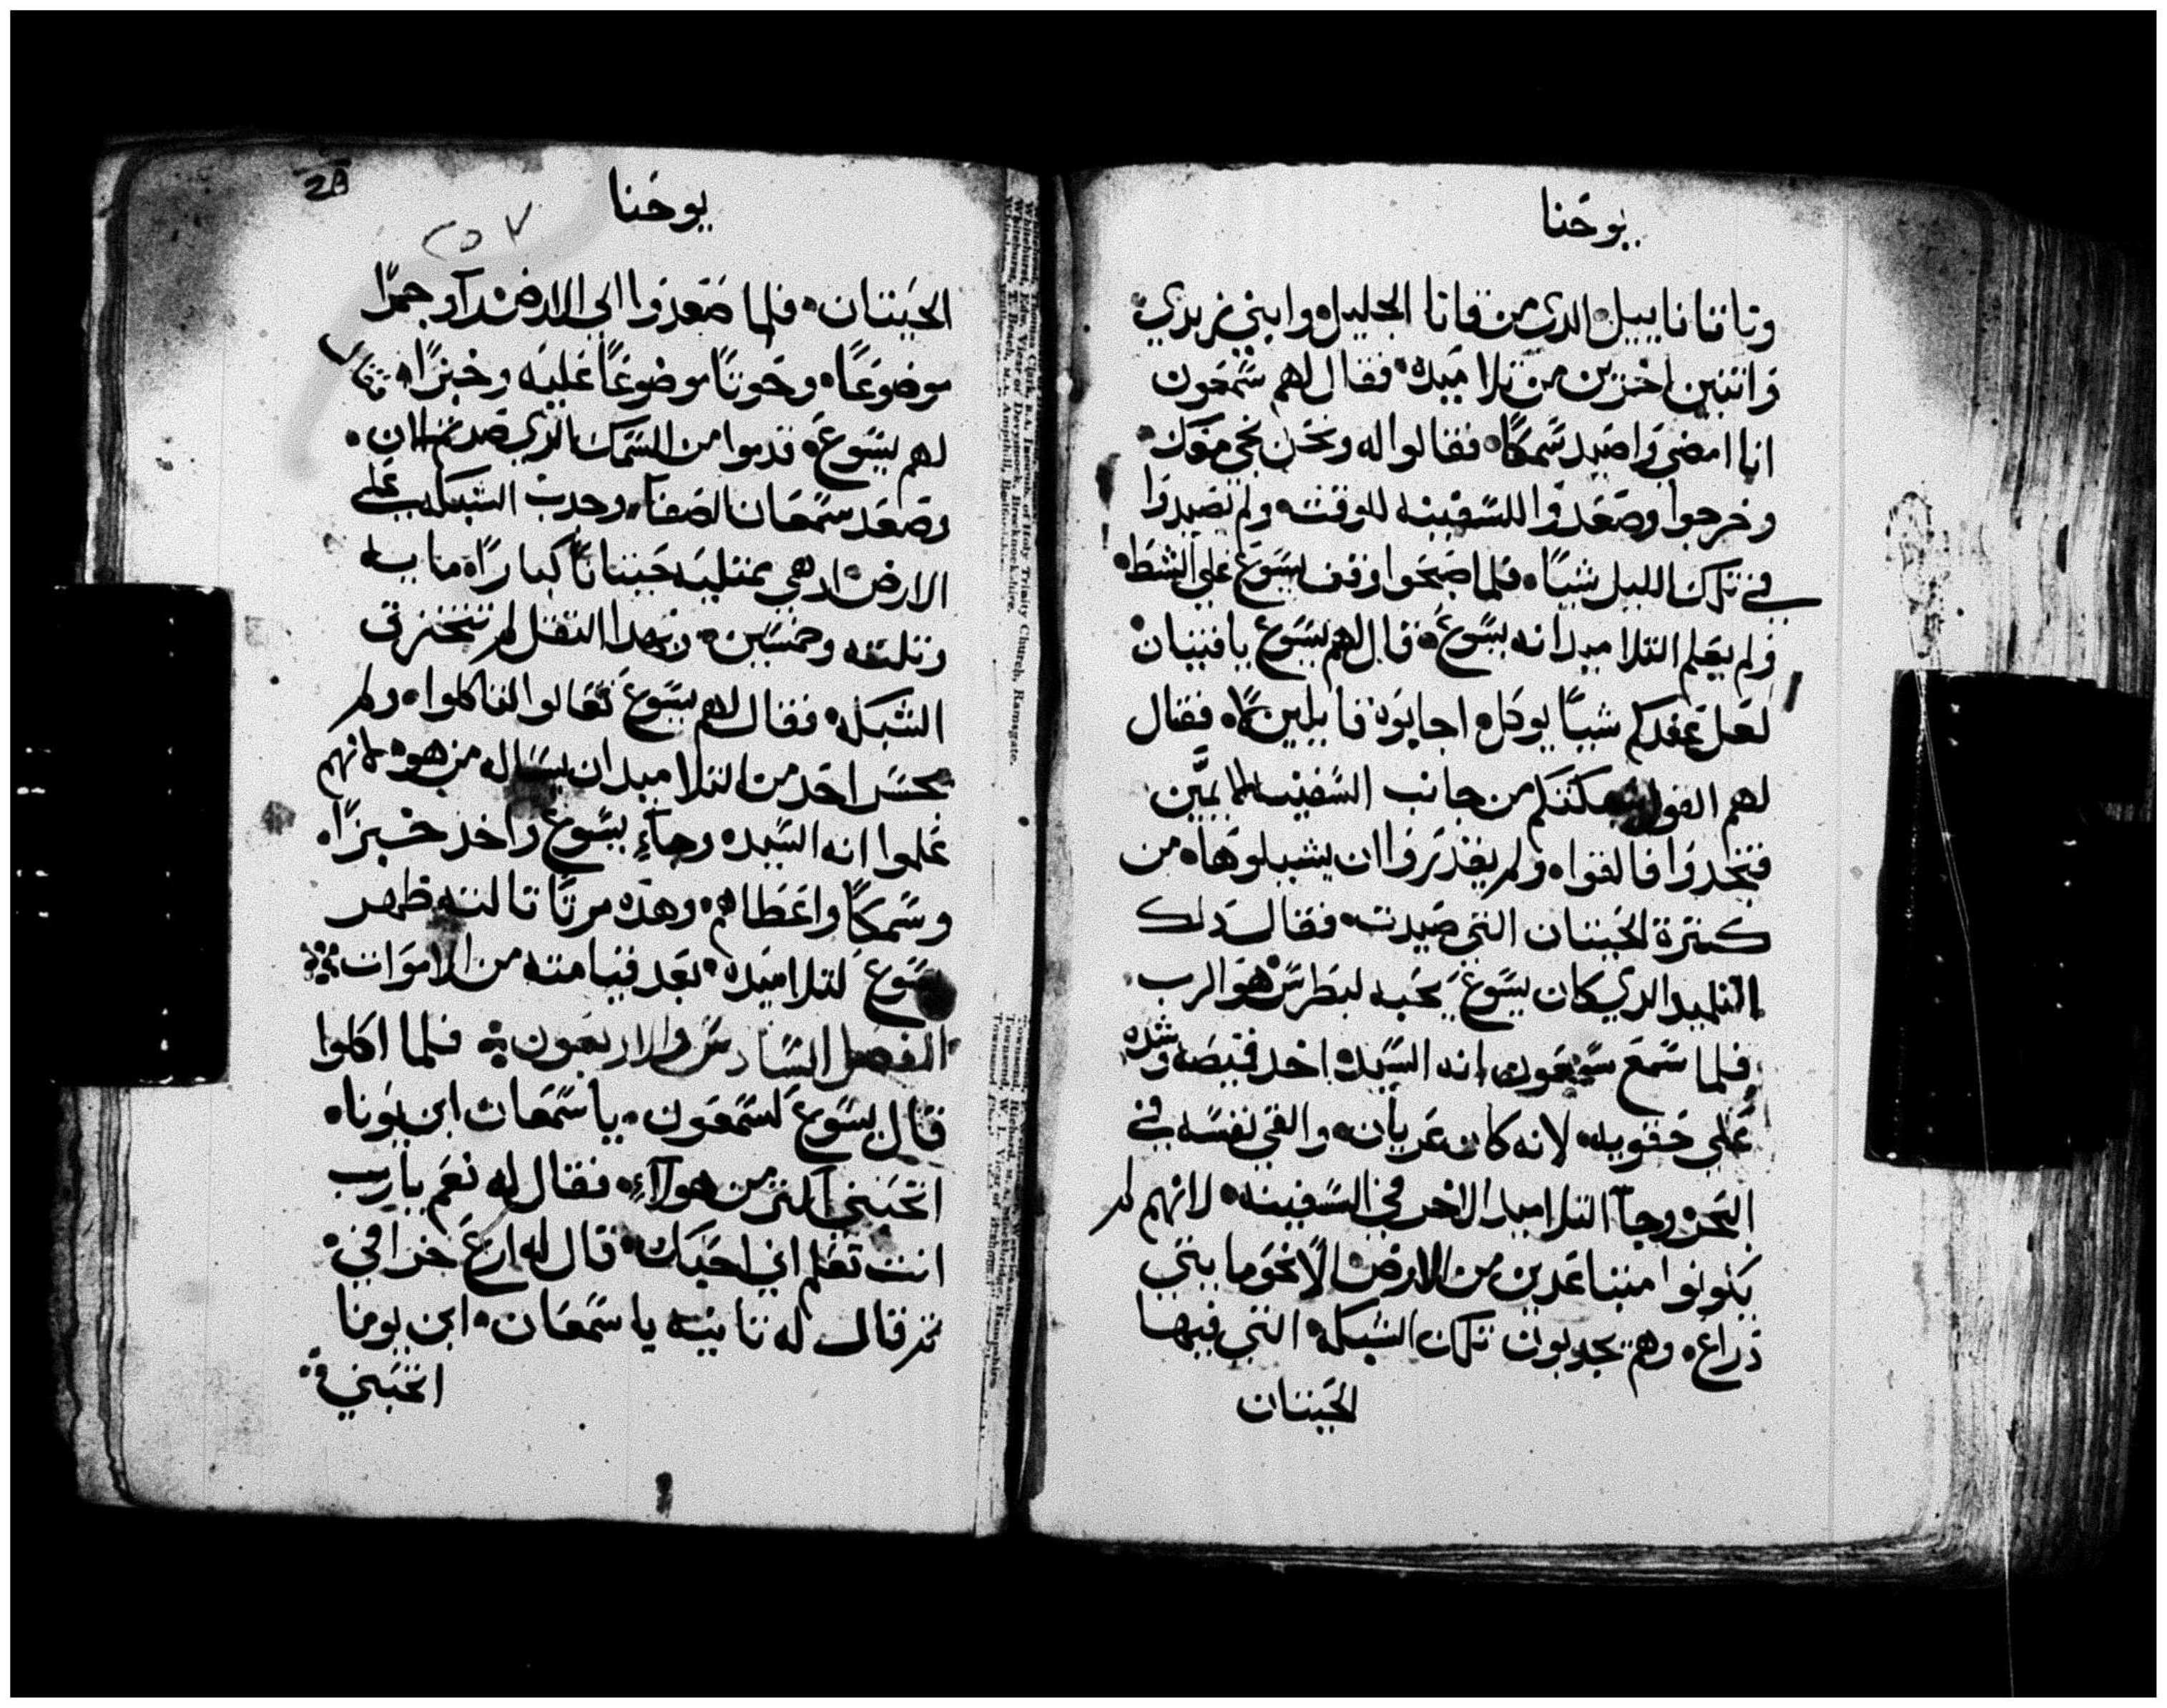 يوحنا
وناتانابيل الدي من قانا الجليل وابني زبدي
واتنين اخرين من تلاميده فقال لهم شمعون
انا امضي واصيد سمكًا فقالوا له ونحن نجي معك
وخرجوا وصعدوا للسفينه للوقت ولم يصيدوا
في تلك الليل شيًا فلما اصبحوا وقف يسوع علي الشط
ولم يعلم التلاميد انه يسوع قال لهم يسوع يا فتيان
لعل عندكم شيًا يوكل اجابوه قايلين لا فقال
لهم القوا شبكتكم من جانب السفينه الايمين
فتجدوا فالقوا ولم يقدروا ان يشيلوها من
كترة الحيتان التي صيدت فقال دلك
التلميد الدي كان يسوع يحبه لبطرس هو الرب
فلما سمع سمعون انه السيد اخد قميصه وشده
علي حقويه لانه كان عريان والقي نفسه في
البحر وجآ التلاميد الاخر في السفينه لانهم لم
يكونوا متباعدين من الارض الا نحو مايتي
دراع وهم يجدبون تلك الشبكه التي فيها
الحيتان
يوحنا
٢٥٧
الحيتان فلما صعدوا الي الارض رآو جمرًا
موضوعًا وحوتًا موضوعًا عليه وخبزًا فقال
لهم يسوع قدموا من السمك الدي صدتم الان
وصعد سمعان الصفا وجدب الشبكه علي
الارض اد هي ممتليه حيتانًا كبارًا مايه
وتلته وخمسين وبهدا التقل لم تتخزق
الشبكه فقال لهم يسوع تعالوا الفا كلوا ولم
يجسر احد من التلاميد ان يساله من هو لانهم
علموا انه السيد وجآء يسوع واخد خبزًا
وسمكًا واعطاهم وهده مرتًا تالته ظهر
يسوع لتلاميده بعد قيامته من الاموات
الفصل السادس والاربعون فلما اكلوا
قال يسوع لسمعون يا سمعان ابن يونا
اتحبني اكتر من هولآء فقال له نعم يا رب
انت تعلم اني احبك قال له ارع خرافي
تم قال له تانيه يا سمعان ابن يونا
اتحبني